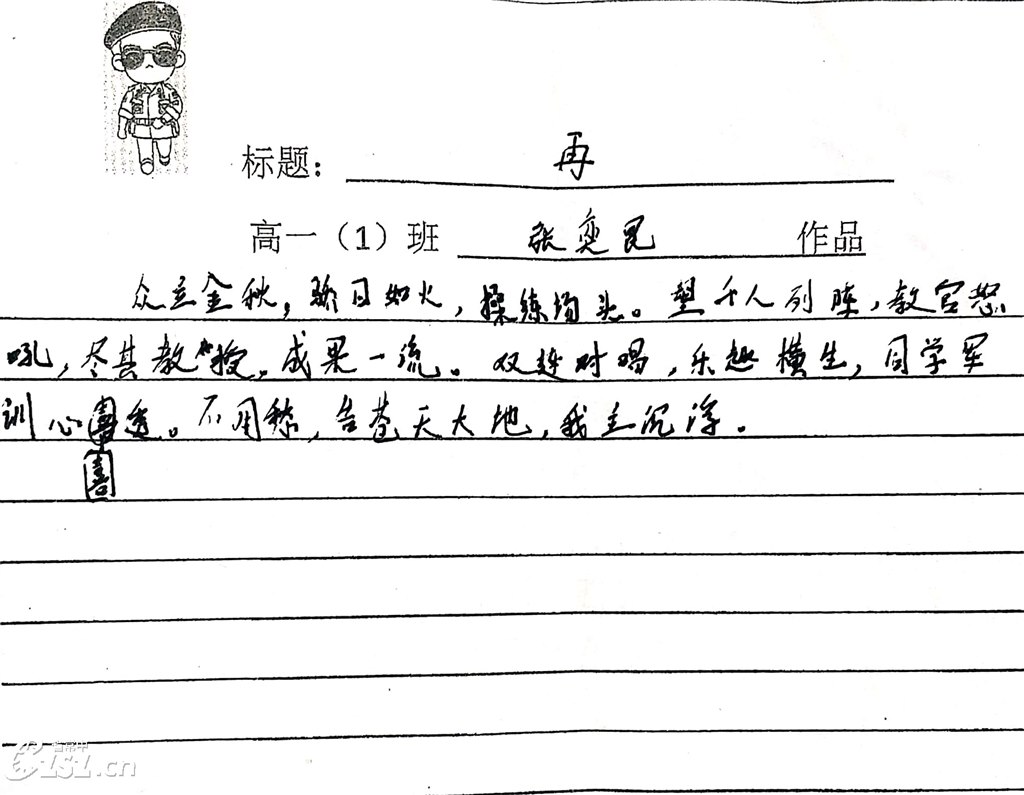 标题: 再
高一（1）班 张奕昆 作品
众立金秋，骄日如火，操练场头。望千人列阵，教官怒
吼，尽其教授，成果一流。双连对唱，乐趣横生，同学军
训心喜透。不用愁，告苍天大地，我主沉浮。
喜
.cn